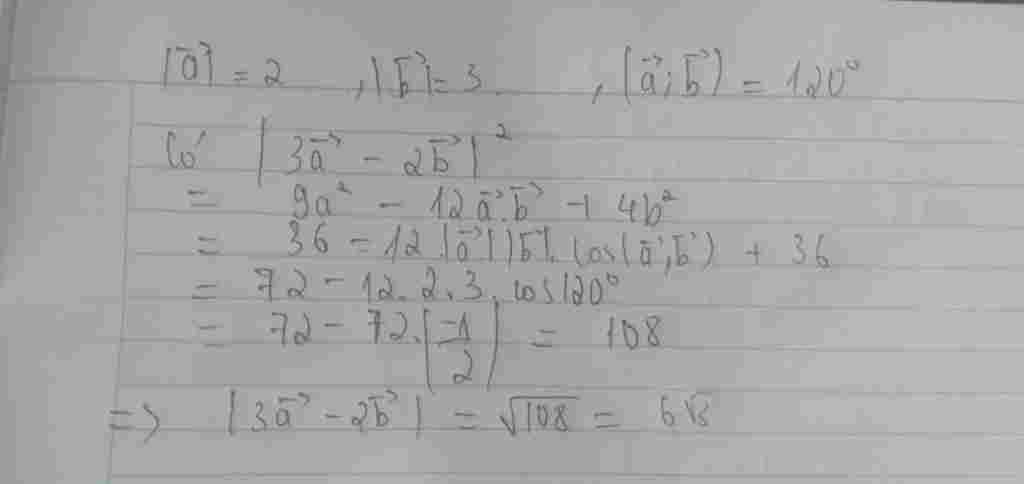 |a⃗| = 2 , |b⃗| = 3 , (a⃗; b⃗) = 120°
Có |3a⃗ - 2b⃗|²
= 9a² - 12a⃗.b⃗ + 4b²
= 36 - 12.|a⃗||b⃗|.cos(a⃗;b⃗) + 36
= 72 - 12.2.3.cos120°
= 72 - 72.(-1/2) = 108
=> |3a⃗ - 2b⃗| = √108 = 6√3